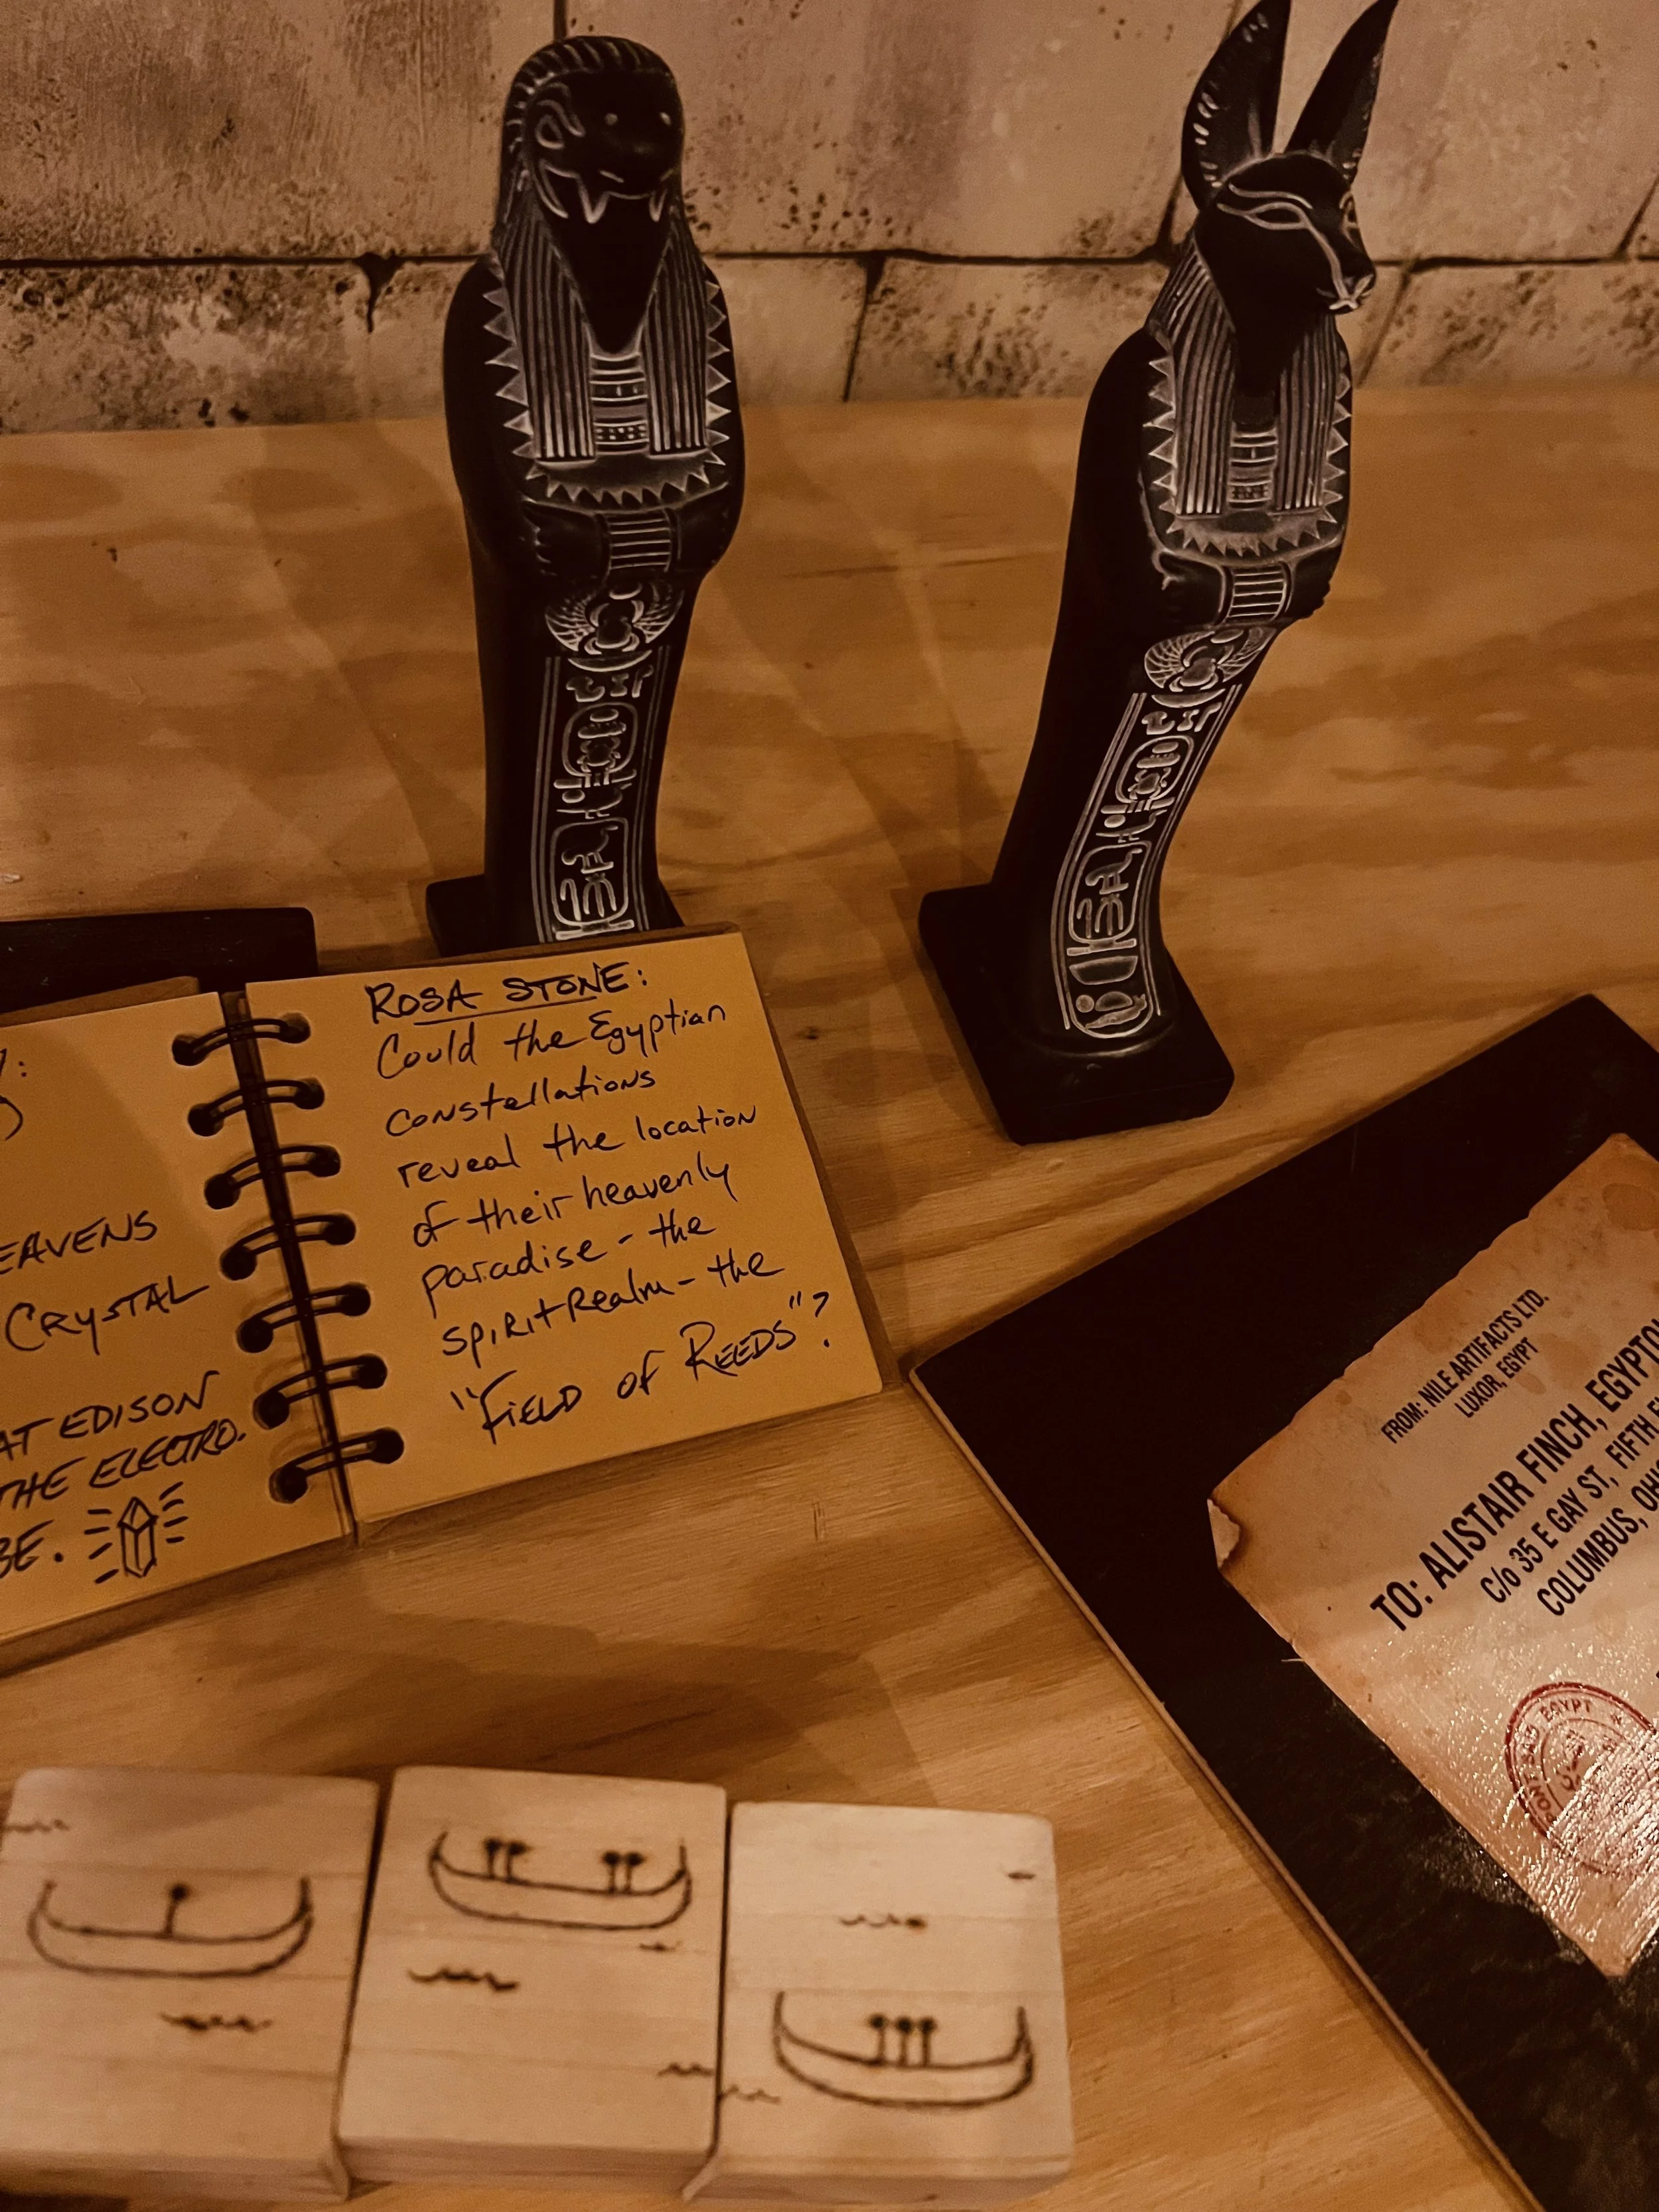 EAVENS
CRYSTAL
AT EDISON
THE ELECTRO.
BE.
ROSA STONE:
Could the Egyptian
constellations
reveal the location
of their heavenly
paradise - the
Spirit Realm - the
"FIELD OF REEDS"?
FROM: NILE ARTIFACTS LTD.
LUXOR, EGYPT
TO: ALISTAIR FINCH, EGYPTO
C/o 35 E GAY ST, FIFTH F
COLUMBUS, OHI
PORT SAID EGYPT